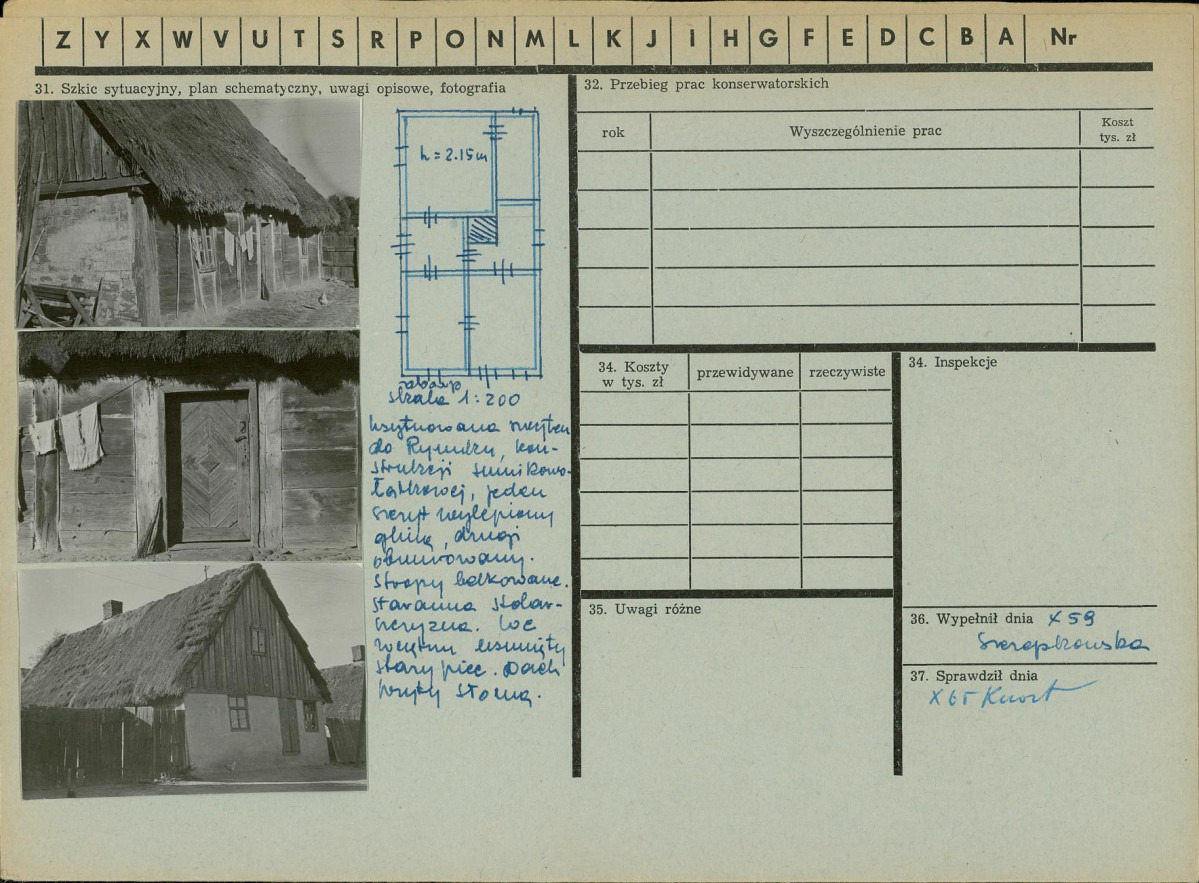 Z Y X W V U T S R P O N M L K J I H G F E D C B A Nr
31. Szkic sytuacyjny, plan schematyczny, uwagi opisowe, fotografia
h = 2.15 m
skala 1:200
usytuowana szczytem
do Rynku, kon-
strukcji sumikowo-
łątkowej, jeden
szczyt wylepiony
gliną, drugi
obmurowany.
Stropy belkowane.
Staranna stolar-
szczyzna. We
wnętrzu usunięty
stary piec. Dach
kryty słomą.
32. Przebieg prac konserwatorskich
rok
Wyszczególnienie prac
Koszt
tys. zł
34. Koszty
w tys. zł
przewidywane
rzeczywiste
34. Inspekcje
35. Uwagi różne
36. Wypełnił dnia X 59
37. Sprawdził dnia
X 65